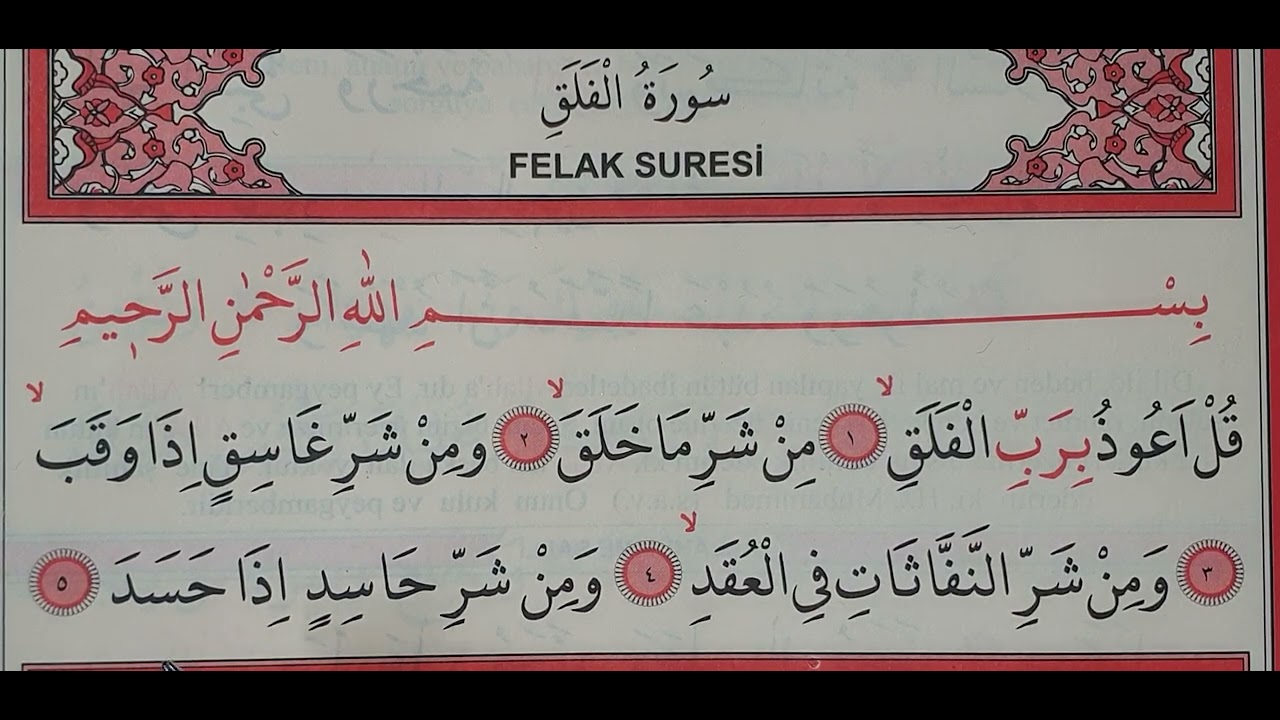 سُورَةُ الْفَلَقِ
FELAK SURESİ
بِسْمِ اللّٰهِ الرَّحْمٰنِ الرَّح۪يمِ
قُلْ اَعُوذُ بِرَبِّ الْفَلَقِۙ ١ مِنْ شَرِّ مَا خَلَقَۙ ٢ وَمِنْ شَرِّ غَاسِقٍ اِذَا وَقَبَۙ
٣ وَمِنْ شَرِّ النَّفَّاثَاتِ فِي الْعُقَدِۙ ٤ وَمِنْ شَرِّ حَاسِدٍ اِذَا حَسَدَ ٥